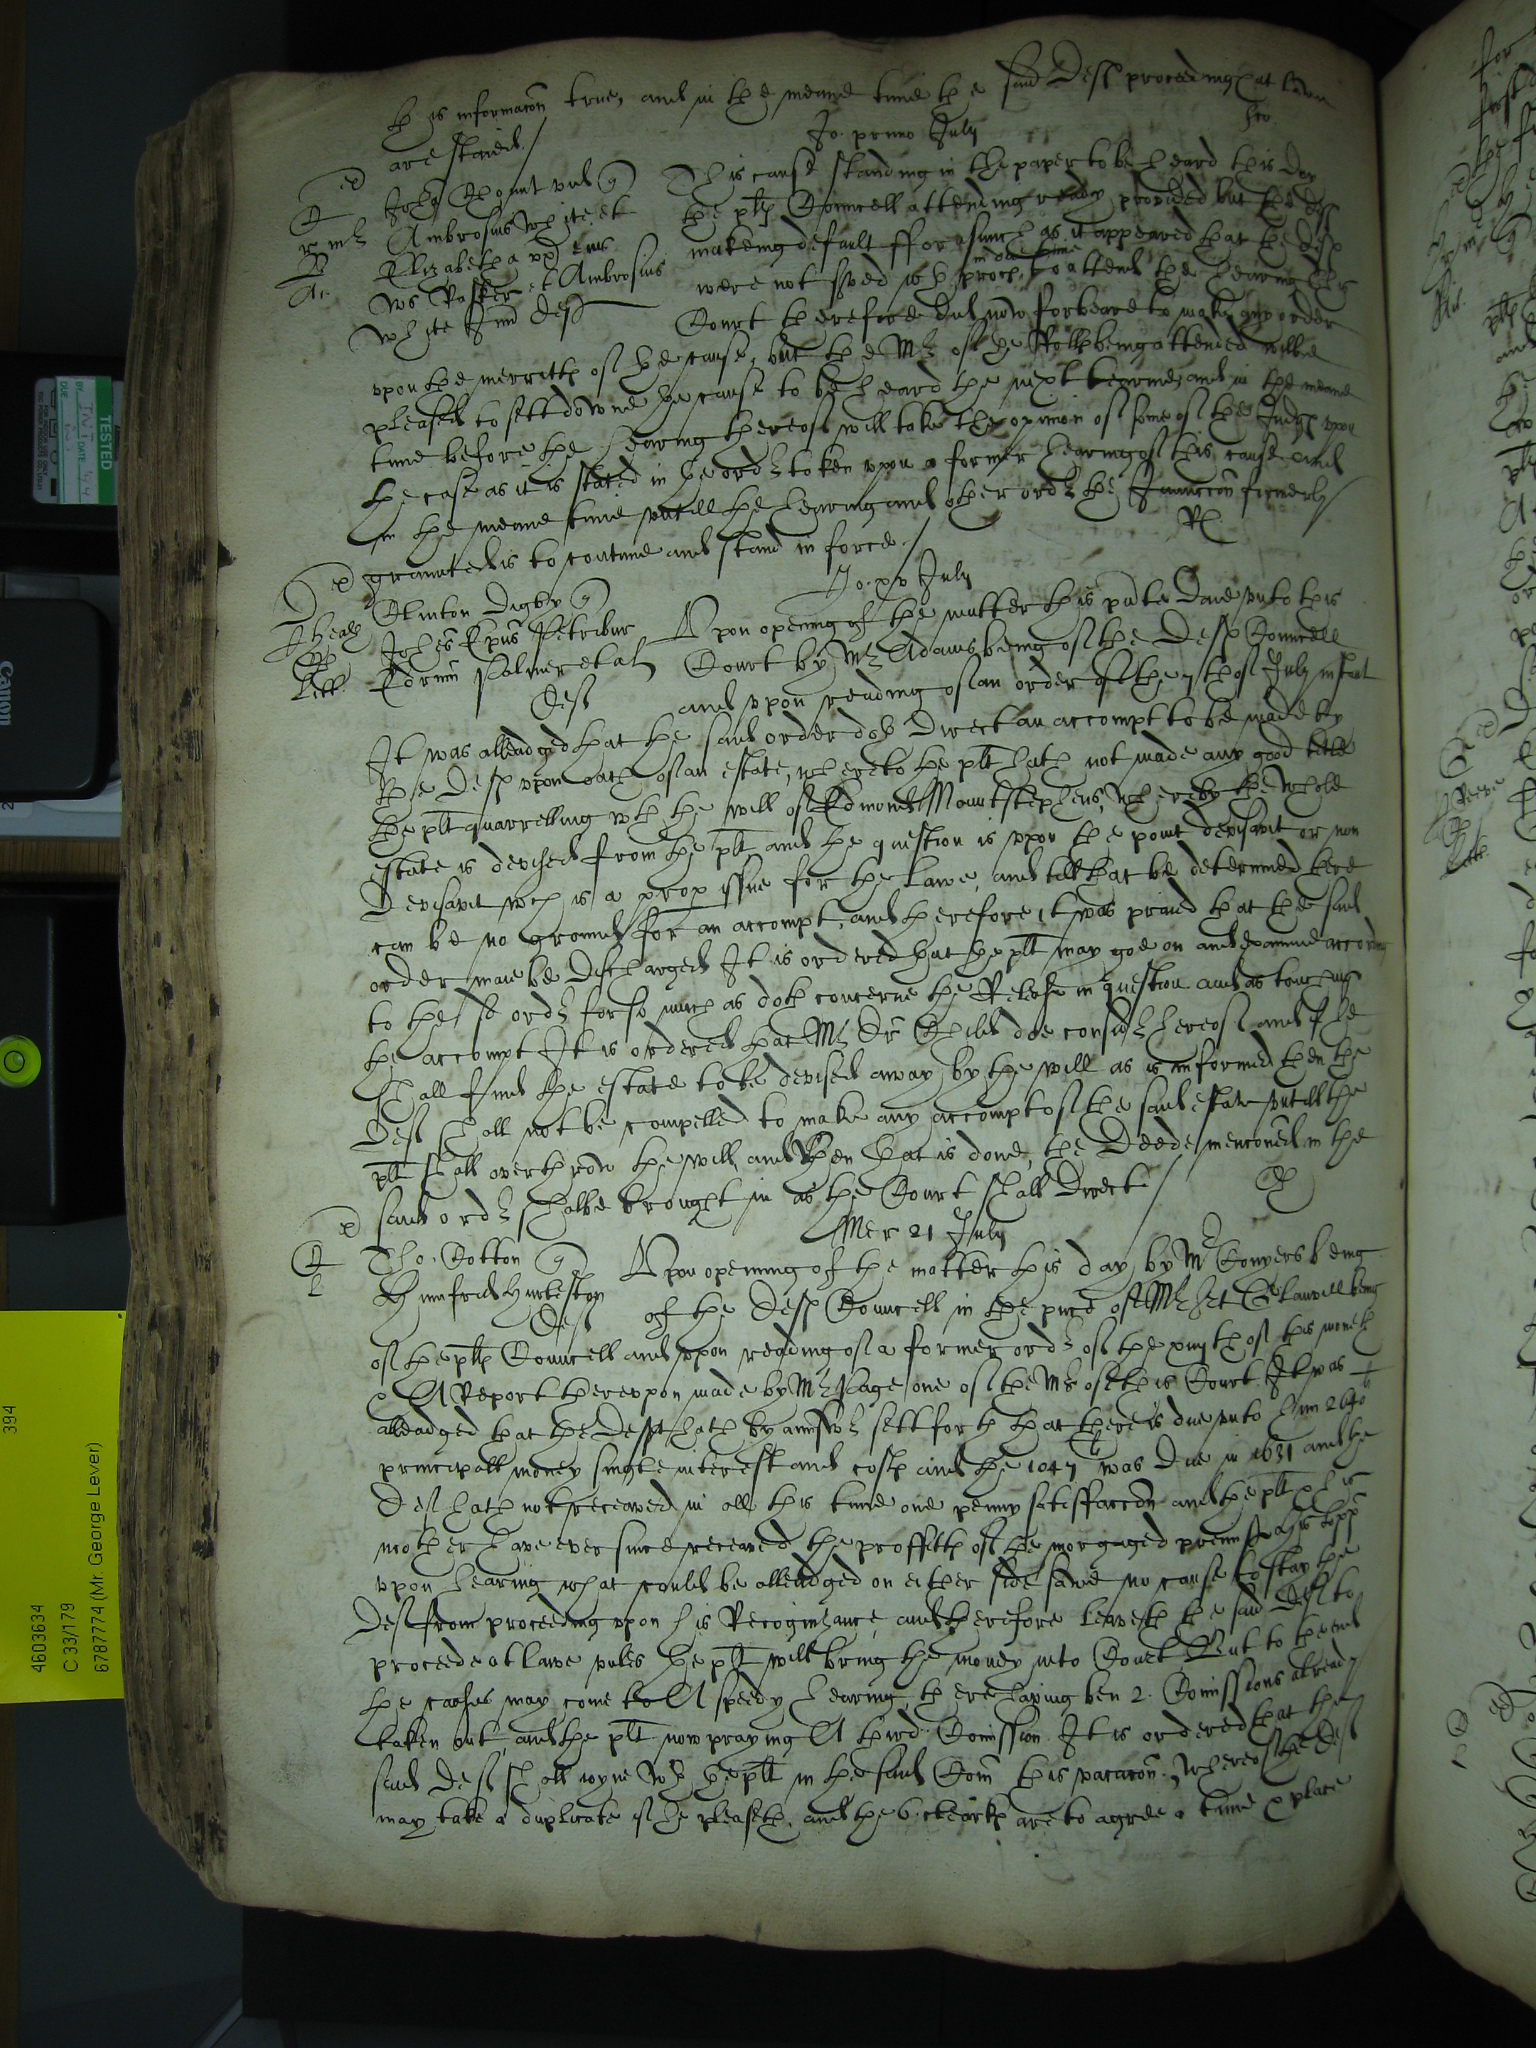 his informacon true, and in the meane time the said Deft proceedings at Lawe
are staied.
Jo. primo July
This cause standing in the paper to be heard this Day
the plts Councell attending ready provided but the deft
Ambrosius White et
makeing default fforasmuch as it appeared that the deft
Elizabetha vx eius
were not served wth proces in due time to attend the hearing this
et Ambrosius
White Jun Deft
Court therefore did now forbeare to make any order
vpon the merritts of the cause, but the Mr of the Rolls being attended wilbe
pleased to sett downe the cause to be heard the next tearme and in the meane
time before the hearing thereof will take the opinion of some of the Judges vpon
the case as it is stated in the ordr taken vpon a former hearing of this cause and
in the meane time vntill the hearing and other ordr the Iniunccon formerly
granted is to contine and stand in force
Jo. xv July
Clinton Digby q
Vpon opening of the matter this pnte Daie vnto this
Johes Epus Petribur
Court by Mr Adams being of the Defts Councell
Edrum Palmer et al
Deft
and vpon reading of an order of the 7th of July instant
It was alleadged that the said order doth Direct an accompt to be made by
the Deft vpon oath of an estate, whereto the plt hath not made any good title
the plt quarrelling wth the will of Edmond Mountstephens, whereby the whole
estate is devised from the plt and the question is vpon the point devisavit or non
Devisavit wch is a prop issue for the Lawe, and till that be determined there
can be no ground for an accompt, and therefore it was praied that the said
order maie be Discharged It is ordered that the plt may goe on and Examine according
to the sd ordr for so much as doth concerne the Release in question and as touching
the accompt It is ordered that Mr Dr Child doe considr thereof and if he
shall find the estate to be devised away by the will as is informed then the
Deft shall not be compelled to make any accompt of the said estate vntill the
plt shall overthrow the will, and then that is done, the Deede mencioned in the
said ordr shalbe brought in as the Court shall Direct
Mer 21 July
Tho. Cotton q
Vpon opening of the matter this day by Mr Conyers being
Humfrid
Deft
of the Defts Councell in the pnce of Mr Jet Glanvill being
of the plts Councell and vpon reading of a former ordr of the xiijth of this moneth
& A Report therevpon made by Mr Page one of the Mrs of this Court It was
alleadged that the Deft hath by answr sett forth that there is due vnto him 2640li
principall money single interest and costs and the 1047li was Due in 1631 and the
Deft hath not receaved in all this time one penny satisfaccon and the plt & his
mother have ever since receaved the proffitts of the morgaged premisses
vpon hearing what could be alleadged on either side sawe no cause to stay the
Deft from proceeding vpon his Recognizance, and therefore leaveth the said Deft to
proceede at Lawe vnles the plt will bring the money into Court But to the end
the causes may come to A speedy hearing, there having ben 2. Comissions already
taken out and the plt now praying A third Comission. It is ordered that the
said Deft shall ioyne wth the plt in the said Com this vacacon, whereof the Deft
may take a duplicate if he pleaseth, and the 6 clearks are to agree a time & place
TESTED
INT
DUE
Canon
394
4603634
C 33/179
6787774 (Mr. George Lever)